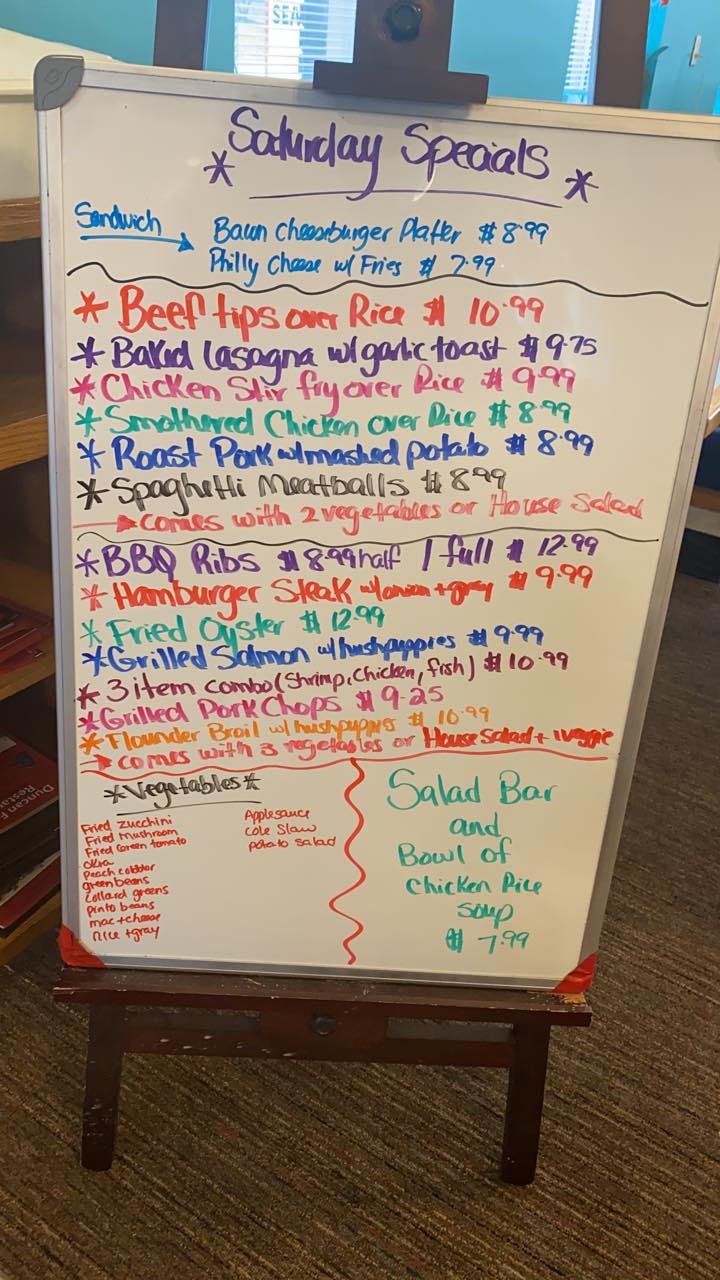 * Saturday Specials *
Sandwich → Bacon Cheeseburger Platter $8.99
Philly Cheese w/ Fries $7.99
* Beef tips over Rice $10.99
* Baked Lasagna w/ garlic toast $9.75
* Chicken Stir fry over Rice $9.99
* Smothered Chicken over Rice $8.99
* Roast Pork w/ mashed potato $8.99
* Spaghetti Meatballs $8.99
→ comes with 2 vegetables or House Salad
* BBQ Ribs $8.99 half / full $12.99
* Hamburger Steak w/ onion + gravy $9.99
* Fried Oyster $12.99
* Grilled Salmon w/ hushpuppies $9.99
* 3 item combo (Shrimp, Chicken, fish) $10.99
* Grilled Pork Chops $9.25
* Flounder Broil w/ hushpuppies $10.99
→ comes with 3 vegetables or House Salad + 1 veggie
* Vegetables *
Fried Zucchini
Fried Mushroom
Fried Green tomato
Okra
Peach cobbler
green beans
Collard greens
Pinto beans
mac + cheese
rice + gravy
Applesauce
Cole Slaw
Potato Salad
Salad Bar
and
Bowl of
Chicken Rice
Soup
$7.99